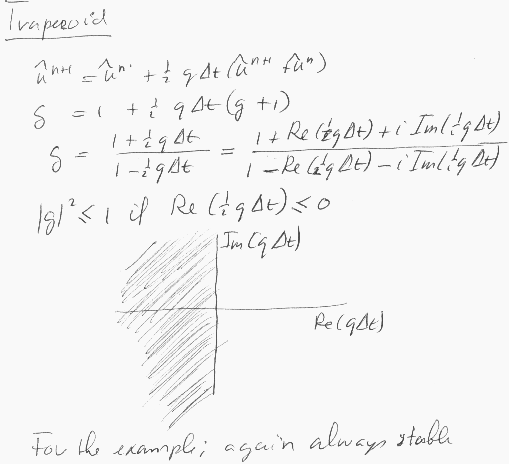 Trapezoid
û^{n+1} = û^n + ½ q Δt (û^{n+1} + û^n)
g = 1 + ½ q Δt (g + 1)
g = (1 + ½ q Δt) / (1 - ½ q Δt) = (1 + Re(½ q Δt) + i Im(½ q Δt)) / (1 - Re(½ q Δt) - i Im(½ q Δt))
|g|² ≤ 1 if Re(½ q Δt) ≤ 0
Im(q Δt)
Re(q Δt)
For the example; again always stable